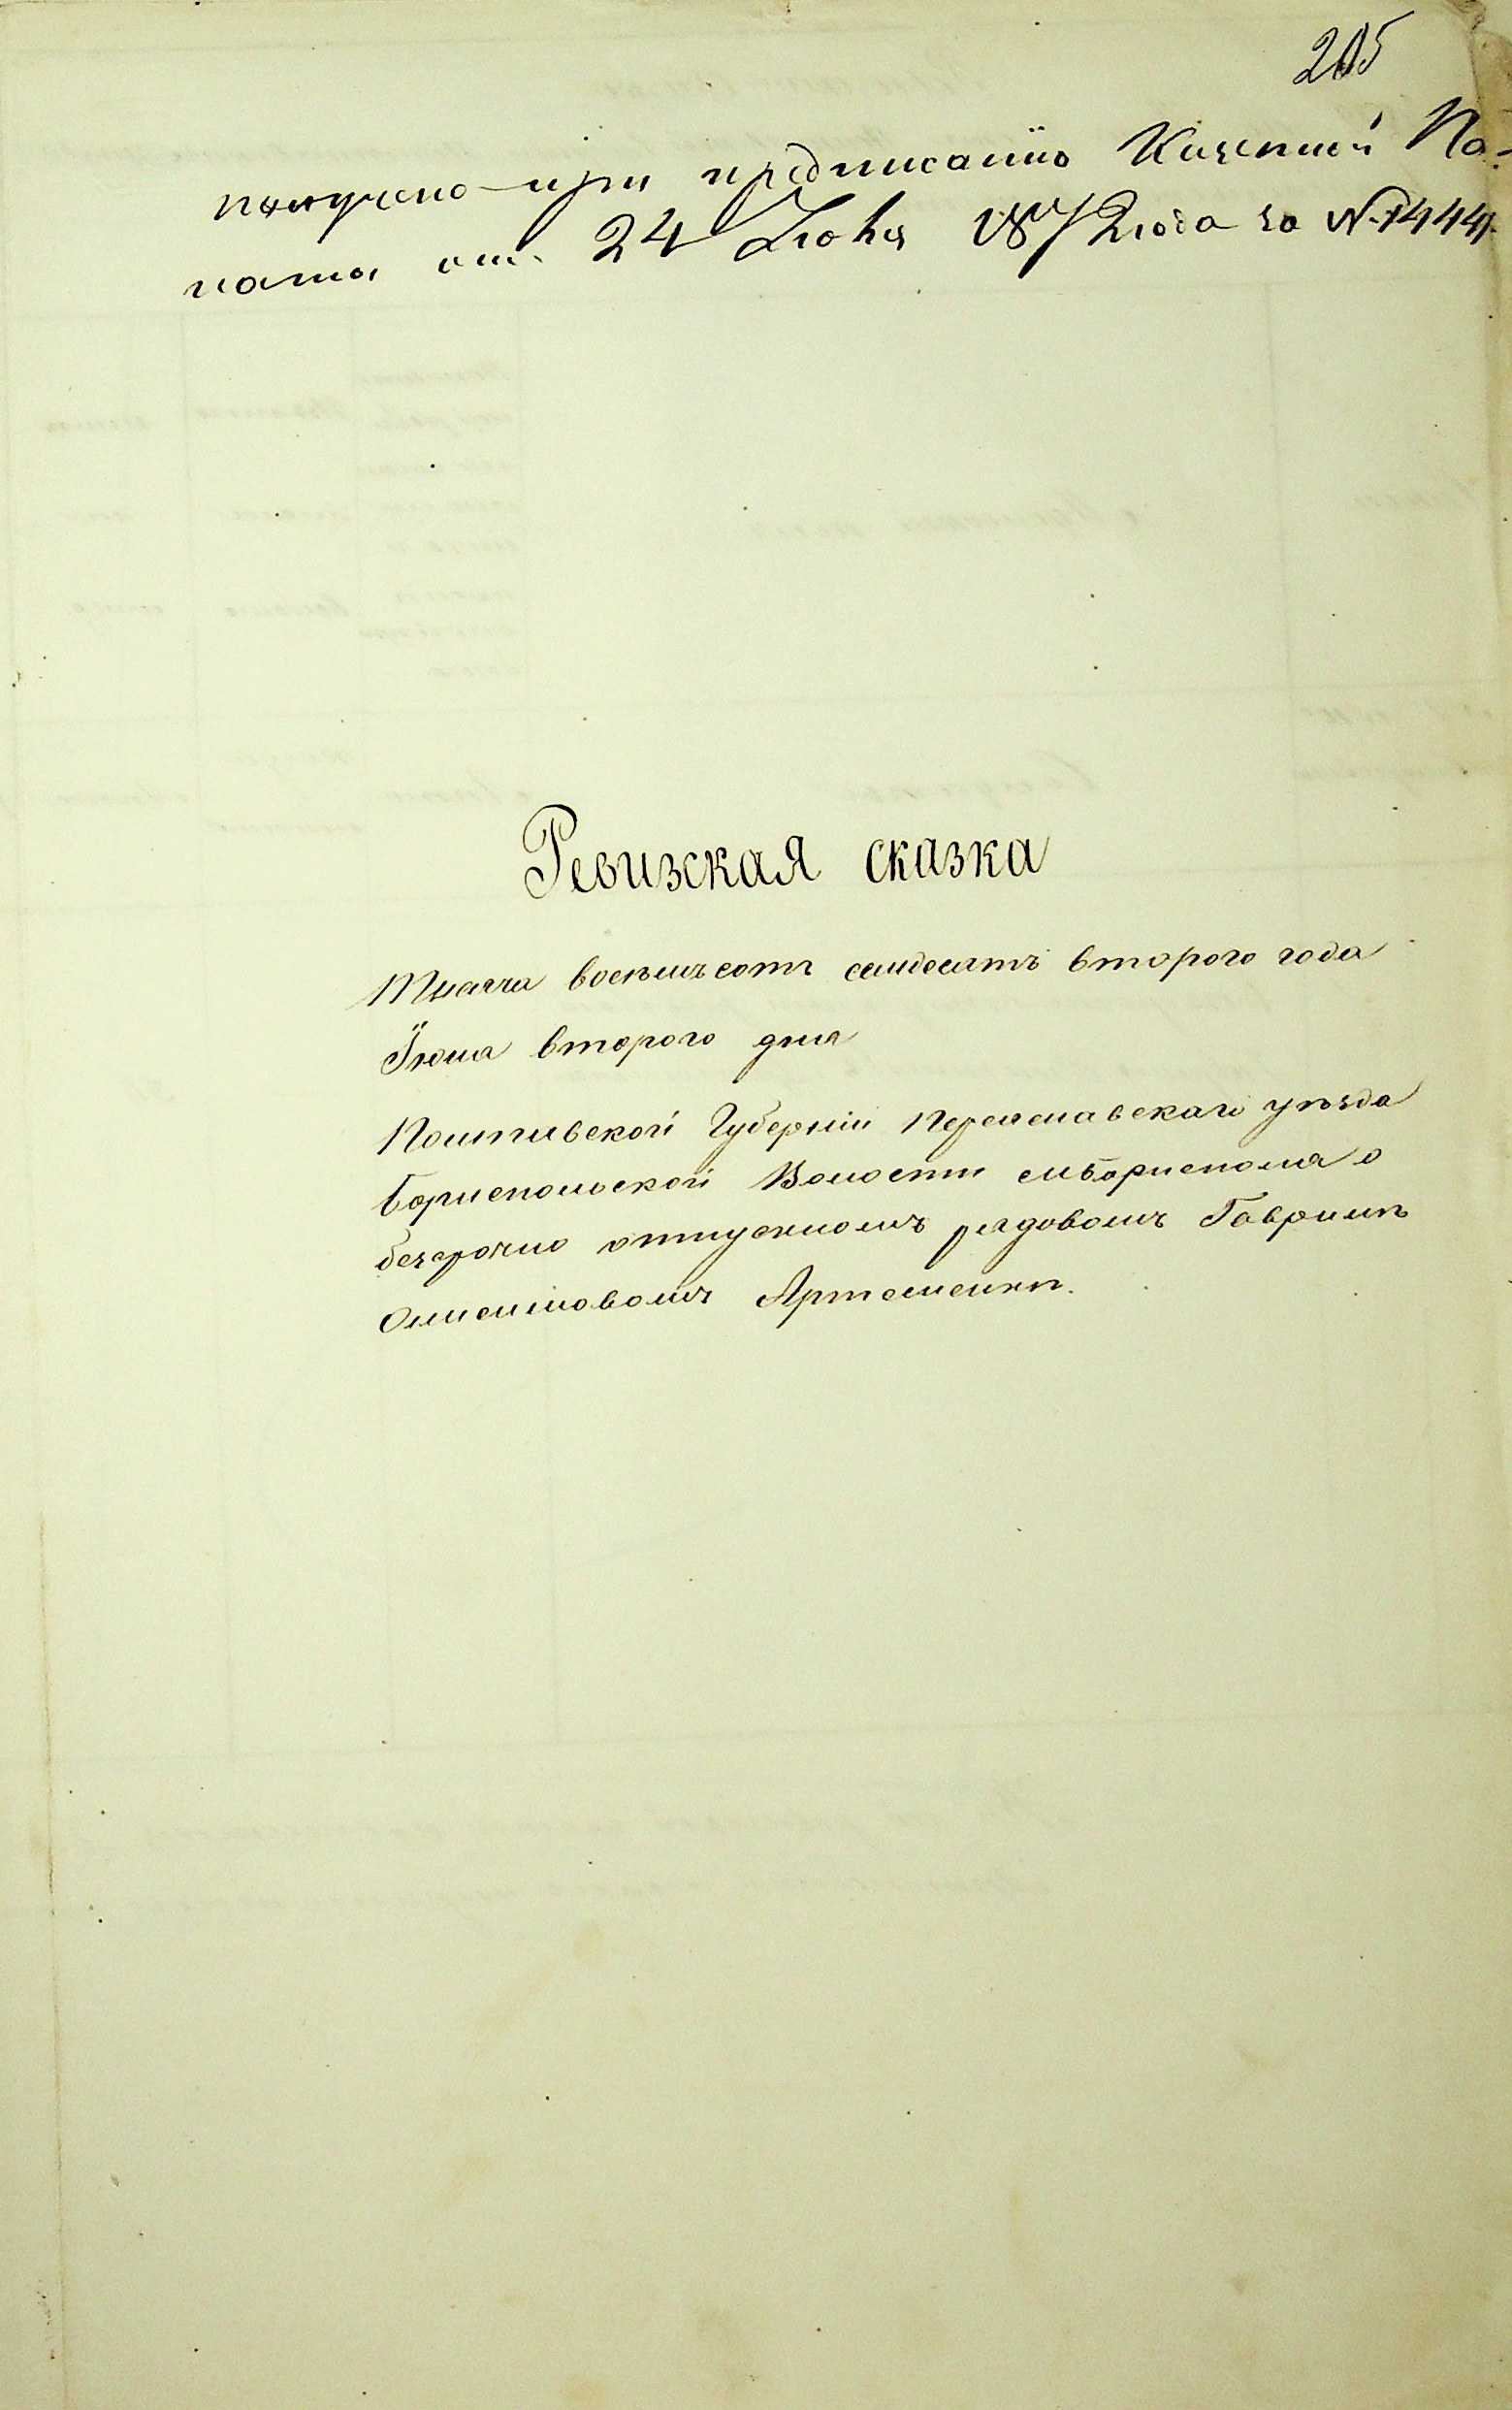 205
получено при предписанію Казенной Па-
латы отъ 24 Іюня 1872 года за №14441
Ревизская сказка
Тысяча восемьсотъ семдесятъ второго года
Іюня второго дня
Полтавской Губерніи Переяславскаго уѣзда
Бориспольской Волости м Борисполя о
безсрочно отпускномъ рядовомъ Гаврилѣ
Омельяновомъ Артеменкѣ.